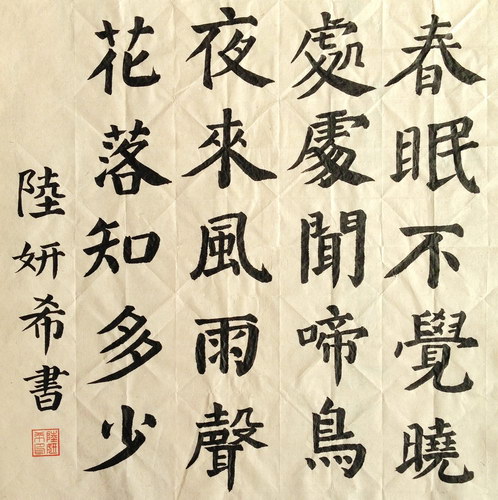 春眠不覺曉
處處聞啼鳥
夜來風雨聲
花落知多少
陸妍希書